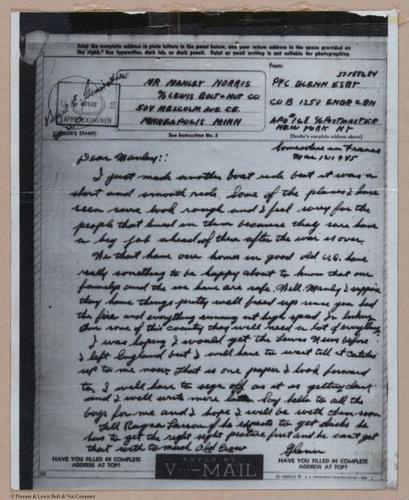 Print the complete address in plain letters in the panel below, and your return address in the space provided on the right. Use typewriter, dark ink, or dark pencil. Faint or small writing is not suitable for photographing.
MR MANLEY NORRIS
% LEWIS BOLT & NUT CO
504 MALCOLM AVE S.E.
MINNEAPOLIS MINN
From:
PFC GLENN ESBT
CO B 1258 ENGR C BN
APO # 168 % POSTMASTER
NEW YORK NY
(Sender's complete address above)
ARMY EXAMINER
(CENSOR'S STAMP)
See Instruction No. 2
Somewhere in France
Mar. 12 1945
Dear Manley::
I just made another boat ride but it was a
short and smooth ride. Some of the places I have
seen sure look rough and I feel sorry for the
people that lived in them because they sure have
a big job ahead of them after the war is over.
We that have our homes in good old U.S. have
really something to be happy about to know that our
familys and the we have are safe. Well Manley I suppose
they have things pretty well fixed up since you had
the fire and everything running at high speed. In looking
over some of this country they will need a lot of everything
I was hoping I would get the Lewis News before
I left England but I will have to wait till it catches
up to me now. That is one paper I look forward
to. I will have to sign off as it is getting dark
and I will write more later. Say hello to all the
boys for me and I hope I will be with them soon
Tell Ragnar Larson if he expects to get ducks he
has to get the right sight picture first and he can't get
that with to much Old Crow
Glenn
HAVE YOU FILLED IN COMPLETE
ADDRESS AT TOP?
REPLY BY
V···-MAIL
HAVE YOU FILLED IN COMPLETE
ADDRESS AT TOP?
© Pioneer & Lewis Bolt & Nut Company